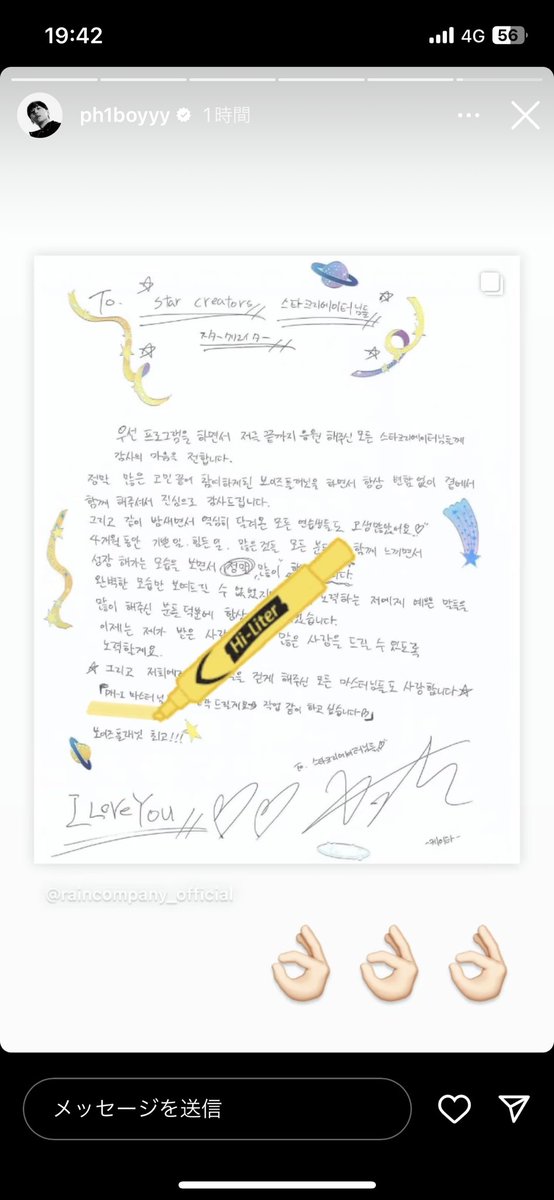 19:42
4G 56
ph1boyyy 1時間
To. Star creators 스타크리에이터님들
スタークリエイター
우선 프로그램을 하면서 저를 끝까지 응원 해주신 모든 스타크리에이터님들께
감사의 마음을 전합니다.
정말 많은 고민 끝에 함께하게된 보이즈플래닛을 하면서 항상 변함 없이 곁에서
함께 해주셔서 진심으로 감사드립니다.
그리고 같이 밤새면서 열심히 달려온 모든 연습생들도 고생많았어요!♡
4개월동안 기쁜일, 힘든일, 많은것들 모든 함께 느끼면서
성장 해가는 모습을 보면서 정말 많이
완벽한 모습만 보여드릴 수 노력하는 저에게 예쁜 말들을
많이 해주신 분들 덕분에 항상
이제는 제가 받은 많은 사랑을 드릴 수 있도록
노력할게요.
☆ 그리고 걷게 해주신 모든 마스터님들도 사랑합니다☆
「PH-1 마스터님 드릴게요 작업 같이 하고 싶습니다」
보이즈플래닛 최고!!!
To. 스타크리에이터님들♡
I Love You
-케이타-
Hi-Liter
@raincompany_official
メッセージを送信